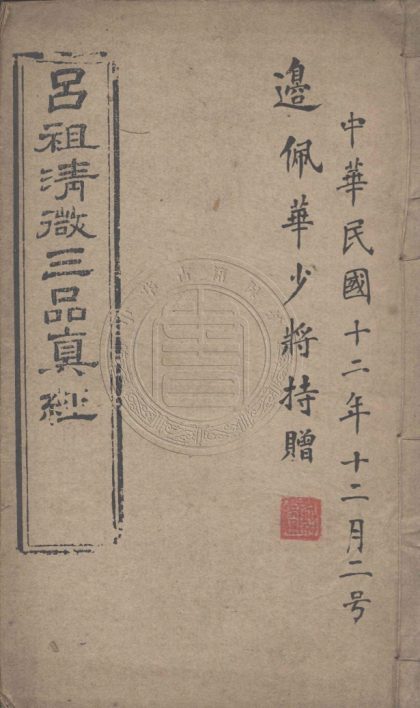 中華民國十二年十二月二号
邉佩華少將持贈
呂祖清微三品真經